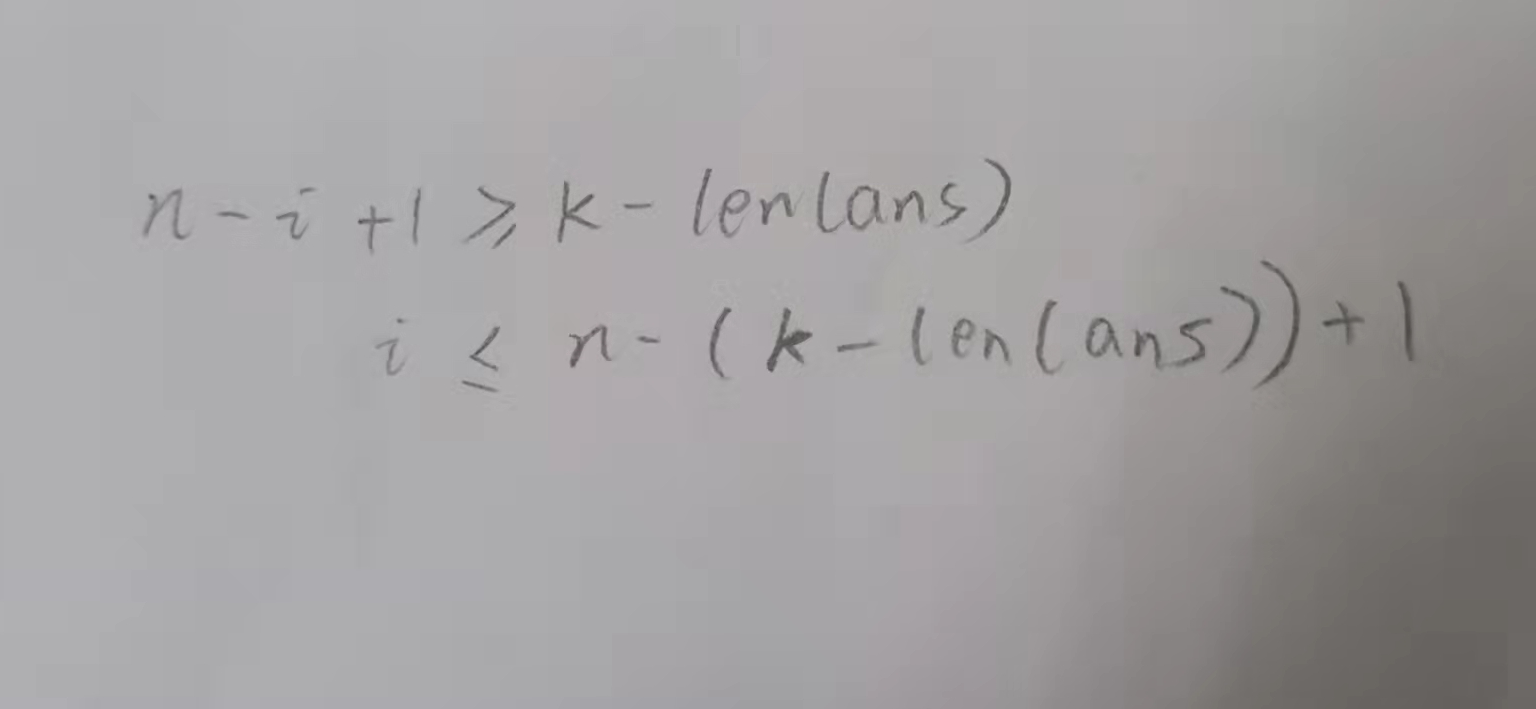 n - i + 1 ⩾ k - len(ans)
i ≤ n - (k - len(ans)) + 1